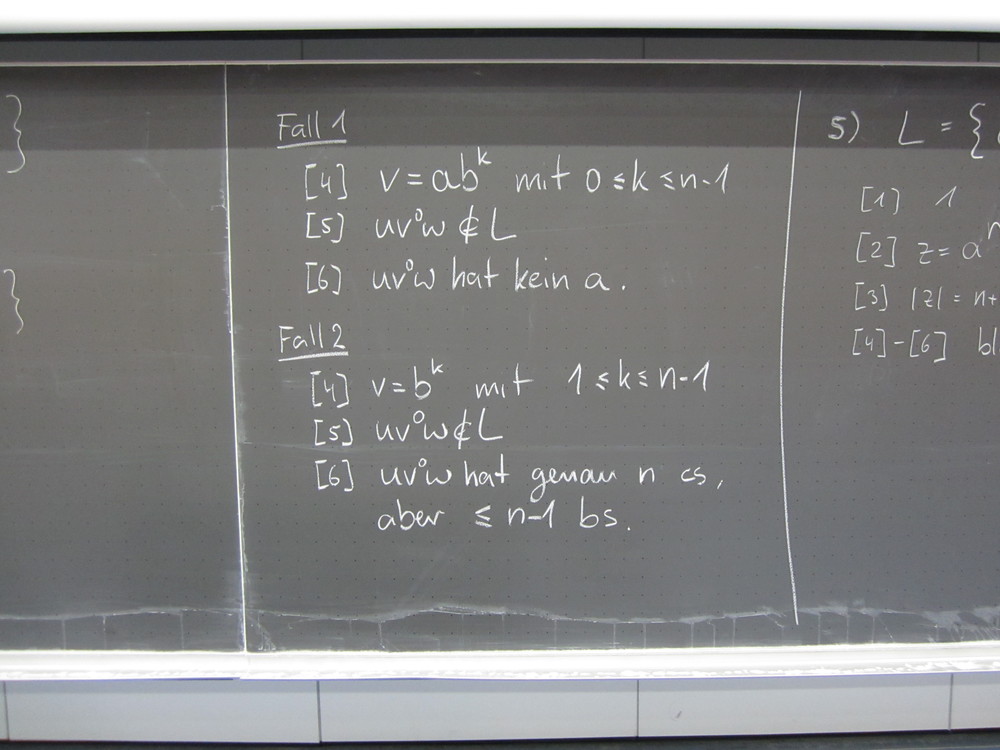 }
}
Fall 1
[4] v = ab^k mit 0 ≤ k ≤ n-1
[5] uv⁰w ∉ L
[6] uv⁰w hat kein a.
Fall 2
[4] v = b^k mit 1 ≤ k ≤ n-1
[5] uv⁰w ∉ L
[6] uv⁰w hat genau n cs,
aber ≤ n-1 bs.
5) L = {
[1] 1
[2] z = a^n
[3] |z| = n+
[4]-[6] bl